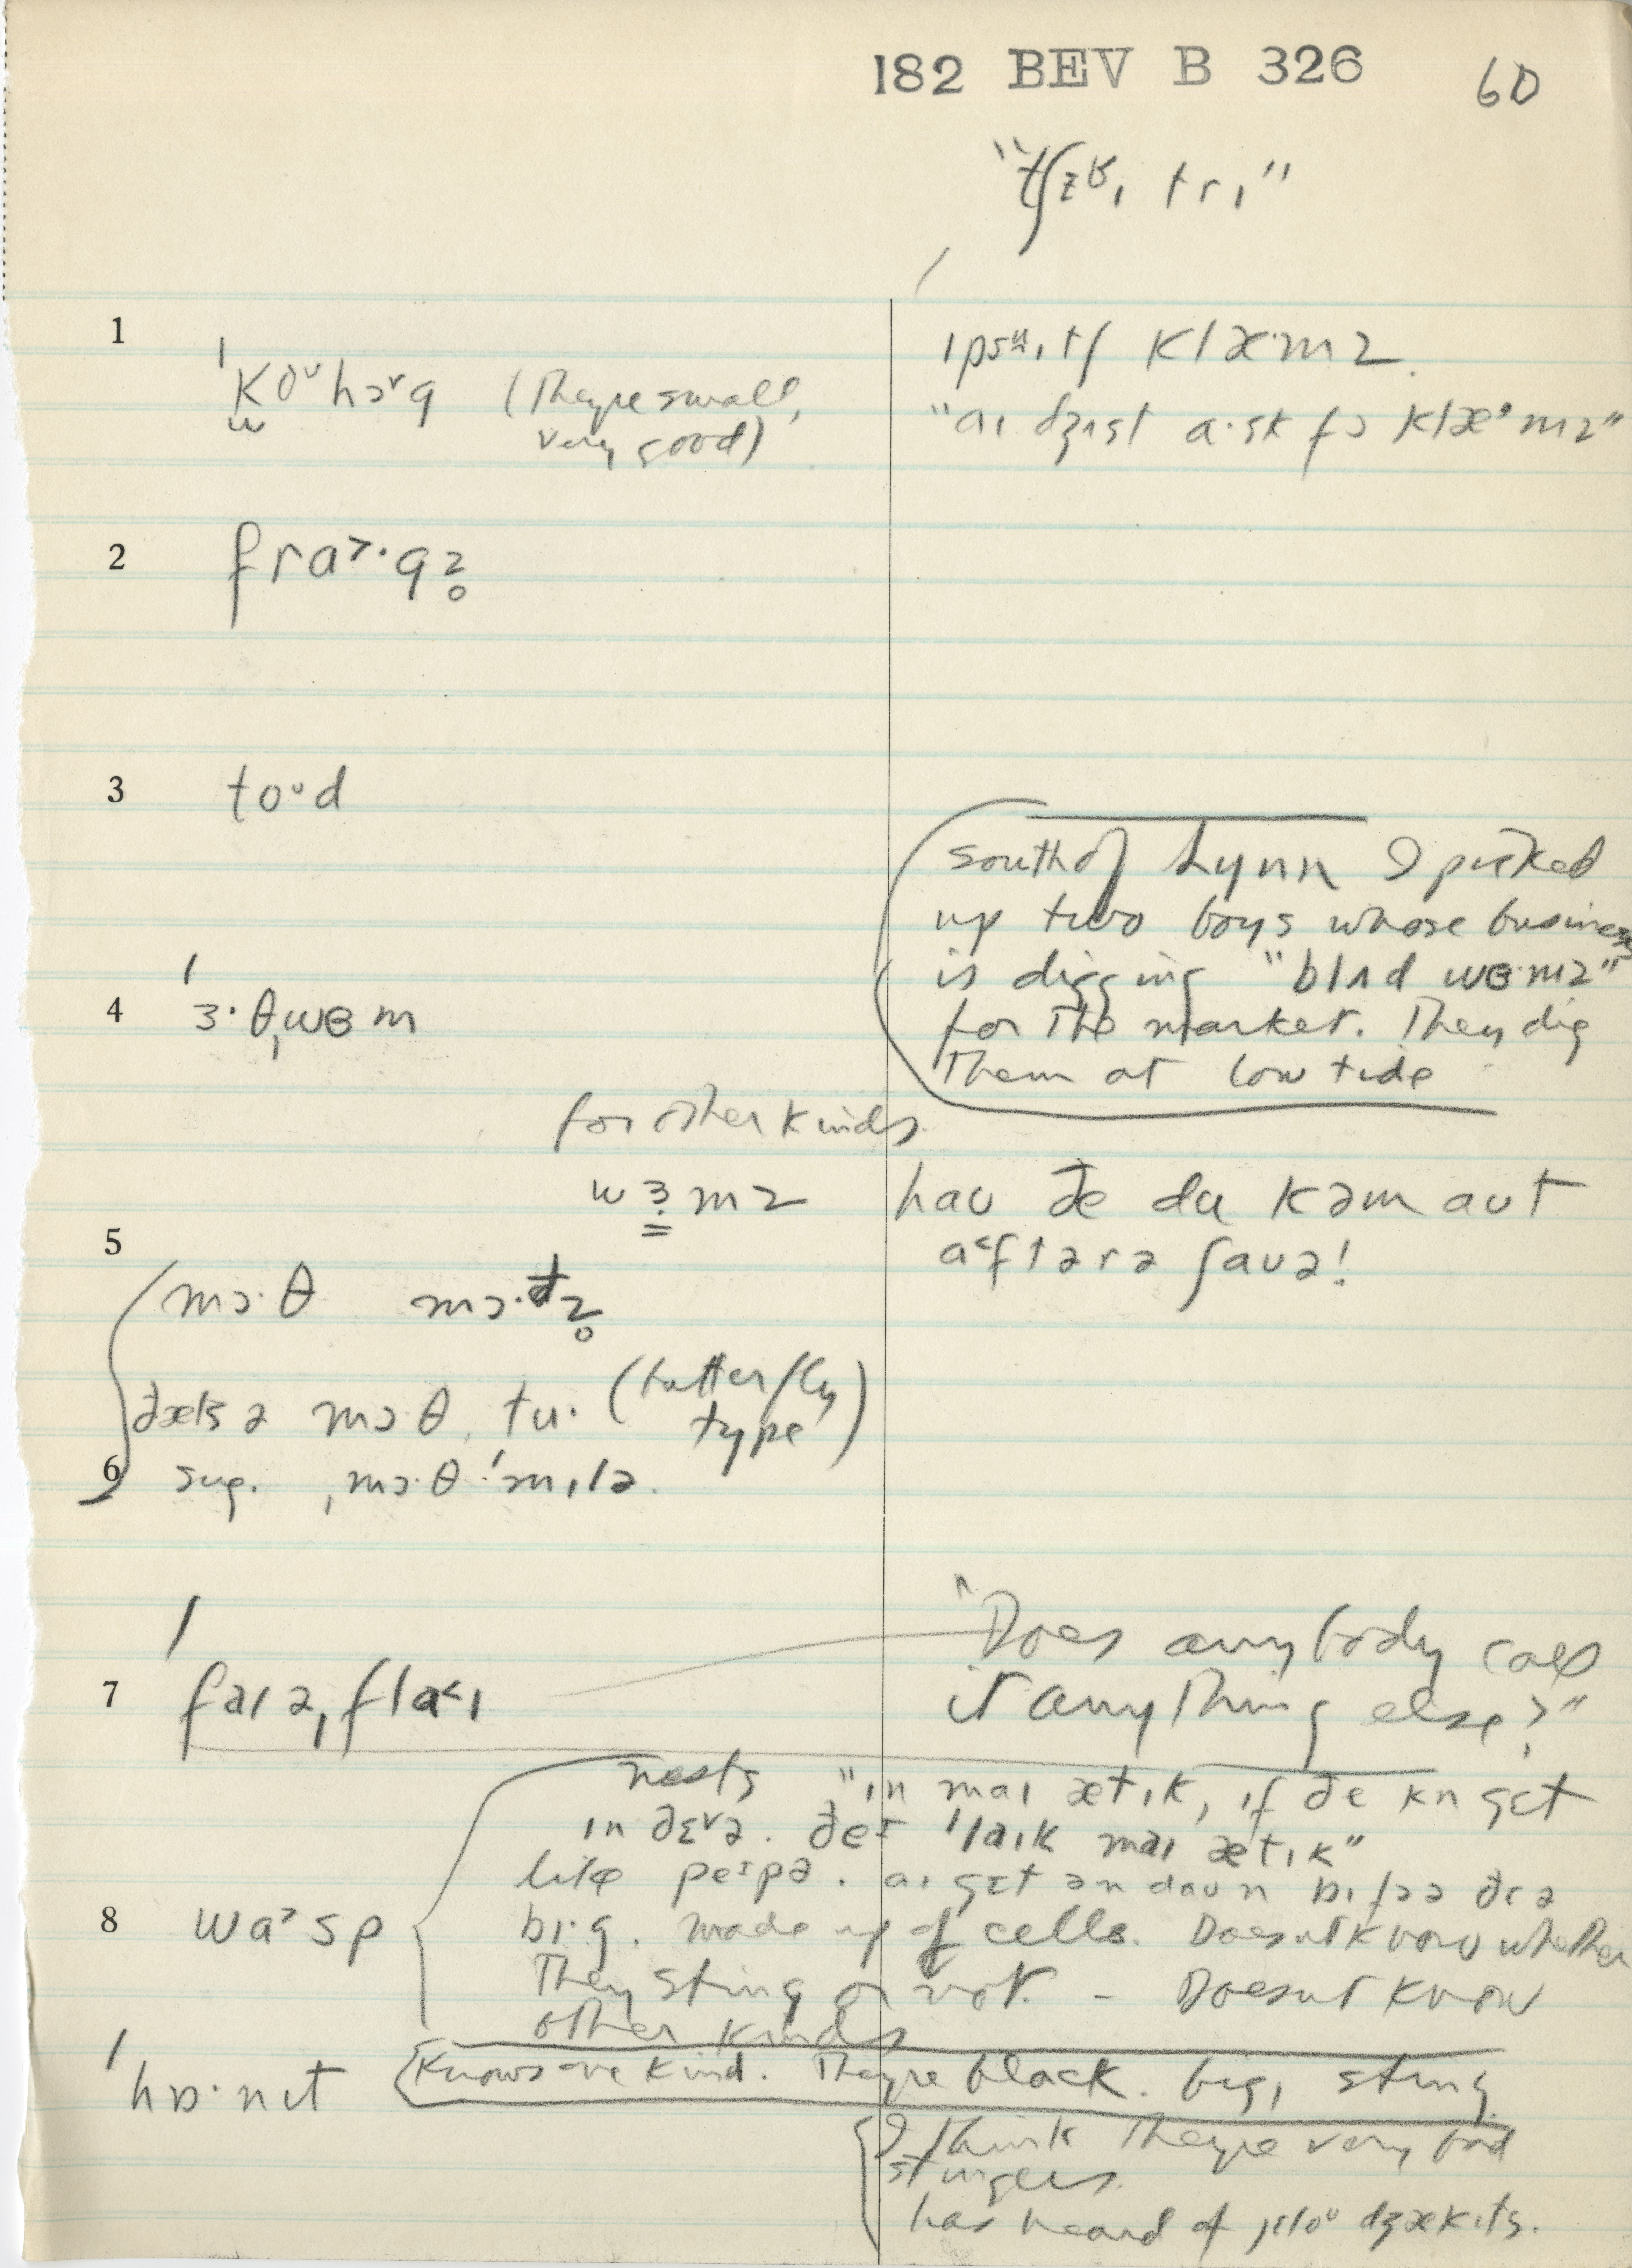 182 BEV B 326 60
"tʃɛɪ tri"
1
ˈkoᵘhɔˇg (They're small,
very good)
klæ·mz.
"aɪ dʒʌst a·sk fɔ klæ·mz"
2 fra˃·gz̥
3 toᵘd
south of Lynn I picked
up two boys whose business
is digging "blʌd wɵ·mz"
for the market. They dig
them at low tide
4 ˈɜ·θˌwɵm
for other kinds
wɜ̣mz haʊ ðe du kəm aʊt
a˂ftər ə ʃaʊə!
5
mɔ·θ mɔ·ðz̥
ðæts ə mɔθ tu· (butterfly
type)
6 sug. ˌmɔ·θ ˈmɪlə.
"Does anybody call
it anything else?"
7 ˈfaɪəˌfla˂ɪ
nests "ɪn maɪ ætɪk, ɪf ðe kn gɛt
ɪn ðɛˇə. ðeɪ ˈlaɪk maɪ ætɪk"
like peɪpə. aɪ gɛt ən daʊn bɪfɔə ðɛə
8 wa˃sp bɪ·g. made up of cells. Doesn't know whether
They sting or not. - Doesn't know
other kinds
ˈhɒ·nɛt Knows one kind. They're black. big, sting
I think they're very bad
stingers.
has heard of jɛloᵘ dʒækɪts.